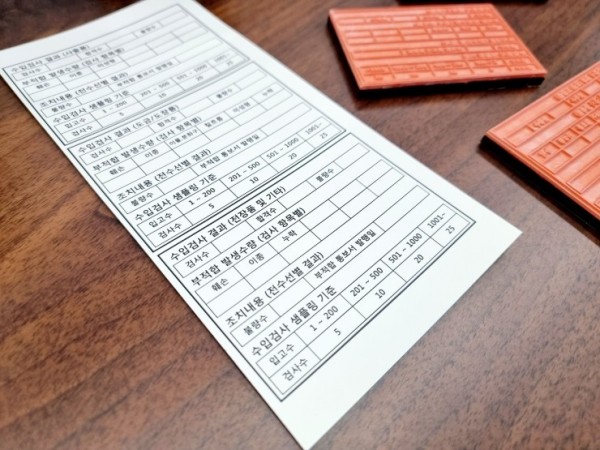 수입검사 결과 (사출물)
검사수 합격수 불량수
부적합 발생수량 (검사 항목별)
훼손 이종
조치내용 (전수선별 결과)
불량수 부적합 통보서 발행일
수입검사 샘플링 기준
입고수 1 ~ 200 201 ~ 500 501 ~ 1000 1001~
검사수 5 10 20 25
수입검사 결과 (도금/도장품)
검사수 합격수 불량수
부적합 발생수량 (검사 항목별)
훼손 이종 누락
조치내용 (전수선별 결과)
불량수 부적합 통보서 발행일
수입검사 샘플링 기준
입고수 1 ~ 200 201 ~ 500 501 ~ 1000 1001~
검사수 5 10 20 25
수입검사 결과 (전장품 및 기타)
검사수 합격수 불량수
부적합 발생수량 (검사 항목별)
훼손 이종 누락
조치내용 (전수선별 결과)
불량수 부적합 통보서 발행일
수입검사 샘플링 기준
입고수 1 ~ 200 201 ~ 500 501 ~ 1000 1001~
검사수 5 10 20 25